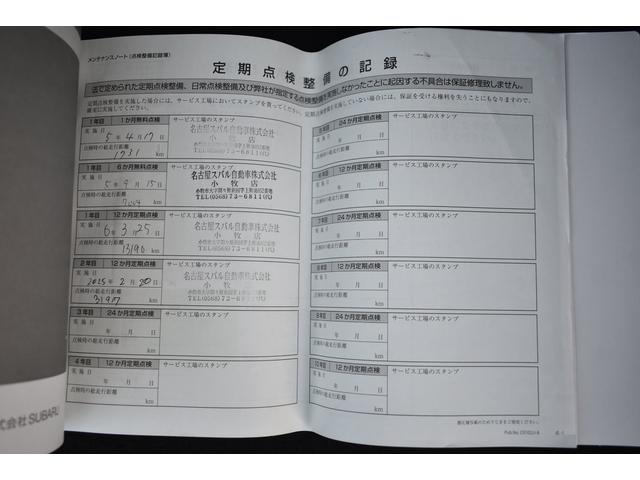 メンテナンスノート（点検整備記録簿）
定期点検整備の記録
法で定められた定期点検整備、日常点検整備及び弊社が指定する点検整備を実施しなかったことに起因する不具合は保証修理致しません。
定期点検整備を実施した場合には、サービス工場においてスタンプを貰ってください。定期点検整備を実施していない場合には、保証を受ける権利を失うことにもなりますので、
確実に実施してください。
1年目 1か月無料点検 サービス工場のスタンプ
実施日 名古屋スバル自動車株式会社
5年4月17日 小牧店
点検時の総走行距離
1731 km TEL(0568)73-6811(代)
1年目 6か月無料点検 サービス工場のスタンプ
実施日 名古屋スバル自動車株式会社
5年9月15日 小牧店
点検時の総走行距離
km TEL(0568)73-6811(代)
1年目 12か月定期点検 サービス工場のスタンプ
実施日 名古屋スバル自動車株式会社
6年3月25日 小牧店
点検時の総走行距離
13190 km TEL(0568)73-6811(代)
2年目 12か月定期点検 サービス工場のスタンプ
実施日 名古屋スバル自動車株式会社
2025年2月20日 小牧店
点検時の総走行距離
31907 km TEL(0568)73-6811(代)
3年目 24か月定期点検 サービス工場のスタンプ
実施日
年 月 日
点検時の総走行距離
km
4年目 12か月定期点検 サービス工場のスタンプ
実施日
年 月 日
点検時の総走行距離
km
5年目 24か月定期点検 サービス工場のスタンプ
実施日
年 月 日
点検時の総走行距離
km
6年目 12か月定期点検 サービス工場のスタンプ
実施日
年 月 日
点検時の総走行距離
km
7年目 24か月定期点検 サービス工場のスタンプ
実施日
年 月 日
点検時の総走行距離
km
8年目 12か月定期点検 サービス工場のスタンプ
実施日
年 月 日
点検時の総走行距離
km
9年目 24か月定期点検 サービス工場のスタンプ
実施日
年 月 日
点検時の総走行距離
km
10年目 12か月定期点検 サービス工場のスタンプ
実施日
年 月 日
点検時の総走行距離
km
式会社SUBARU